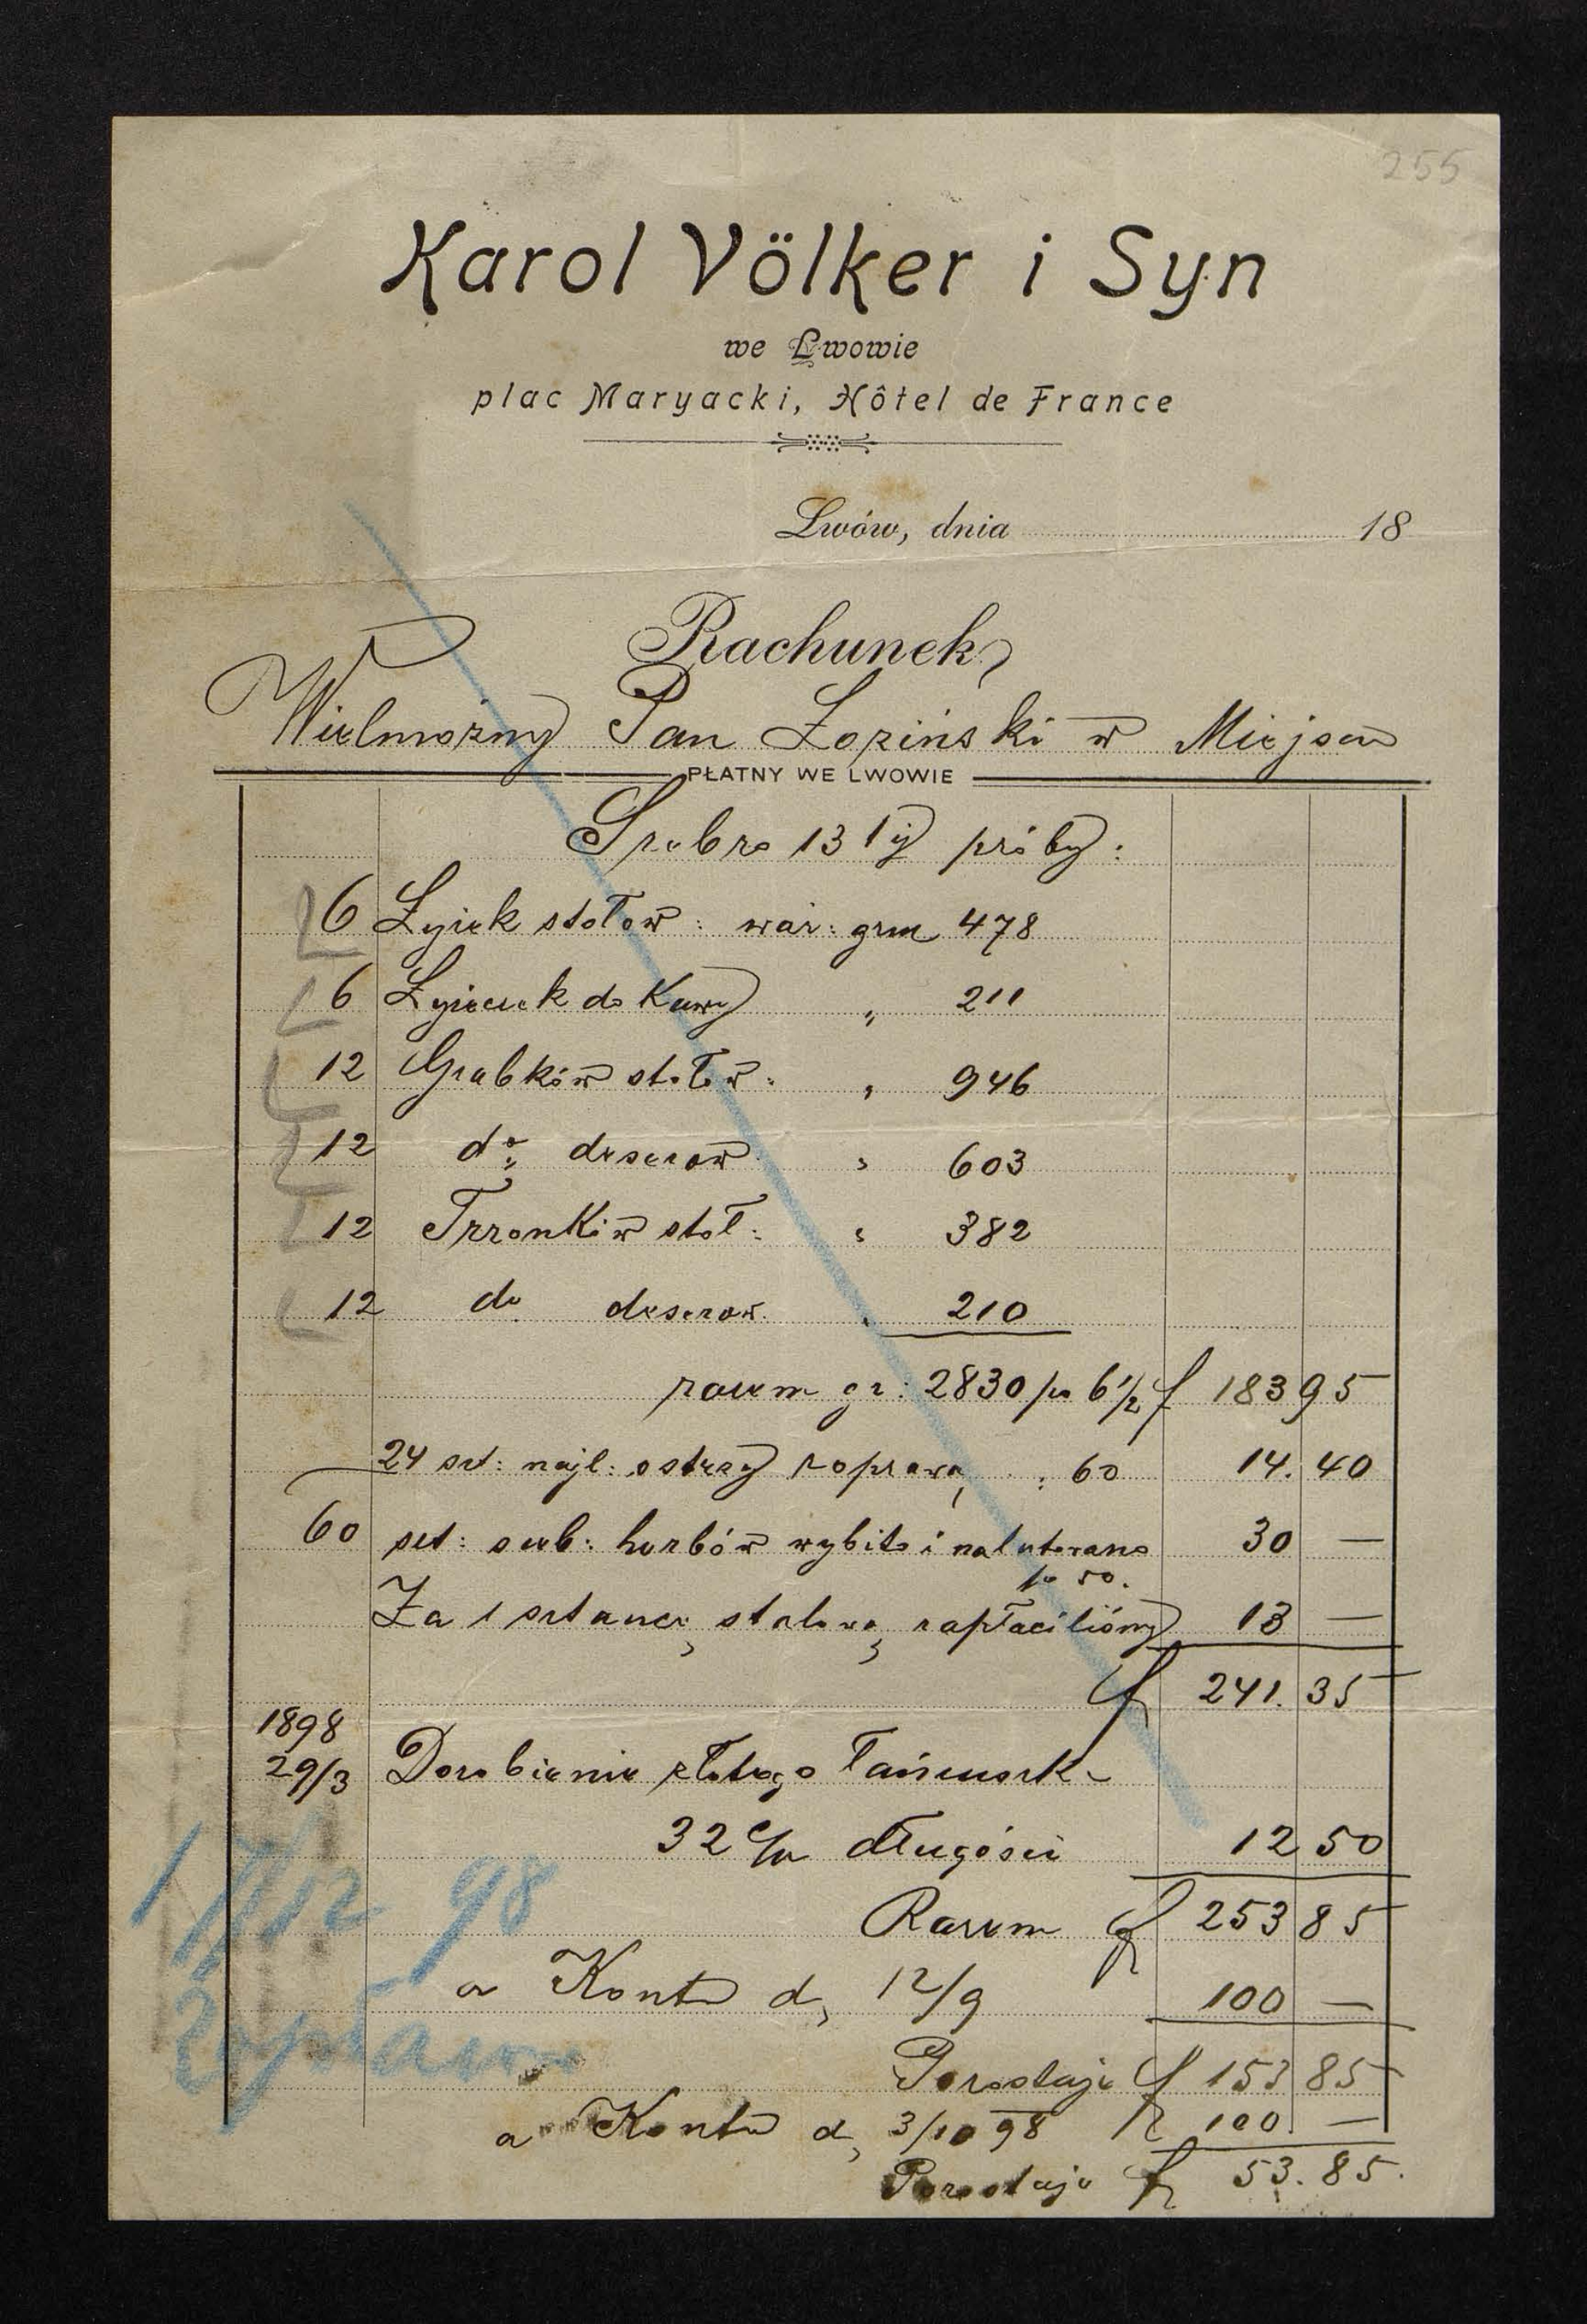 255
Karol Völker i Syn
we Lwowie
plac Maryacki, Hôtel de France
Lwów, dnia 18
Rachunek
Wielmożny Pan Łoziński w Miejscu
PŁATNY WE LWOWIE
Srebro 13 tej próby:
6 Łyżek stołow: waż: grm 478
6 Łyżeczek do Kawy " 211
12 Grabków stołow: " 946
12 do deserow " 603
12 Trzonków stoł: " 382
12 do deserow. " 210
razem gr: 2830 po 6 1/2 f 183 95
24 szt: najl: ostrzy z oprawą : 60 14. 40
60 szt: sreb: herbów wybito i nalutowano 30 —
po 50.
Za 1 sztancę stalową zapłaciliśmy 13 —
f 241. 35
1898
29/3 Dorobienie złotego łańcuszka
32 c/m długości 12 50
Razem f 253 85
a Konto d, 12/9 100 —
17/12 98
Pozostaje f 153 85
Zapłacono
a Konto d, 3/10 98 f 100. —
Pozostaje f 53. 85.